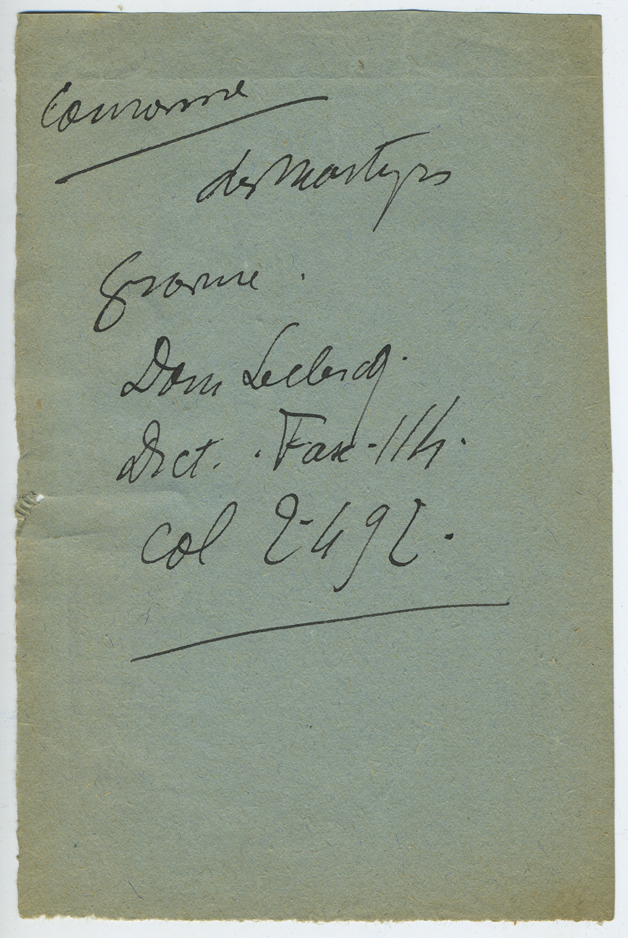 Couronne
des Martyrs
Dom Leclercq.
Dict. . Fasc. 114.
col 2492.